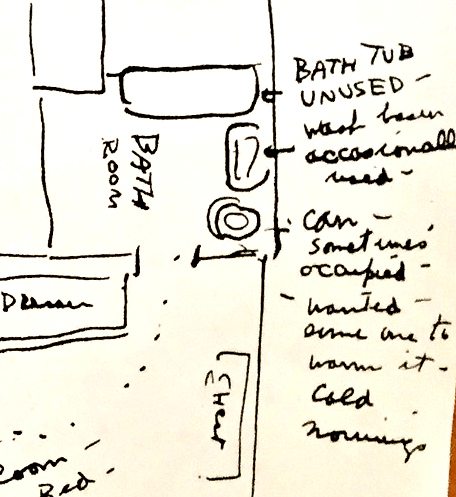 BATH TUB
UNUSED -
wash basin
accasionally
used -
Can -
sometimes
occupied -
- wanted -
some one to
warm it -
Cold
mornings
BATH
ROOM
Dresser
Chest
room -
Bed -